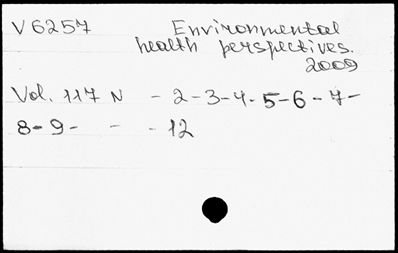 V 6257 Environmental
health perspectives.
2009
Vol. 117 N - 2-3-4-5-6-7-
8-9- - - 12